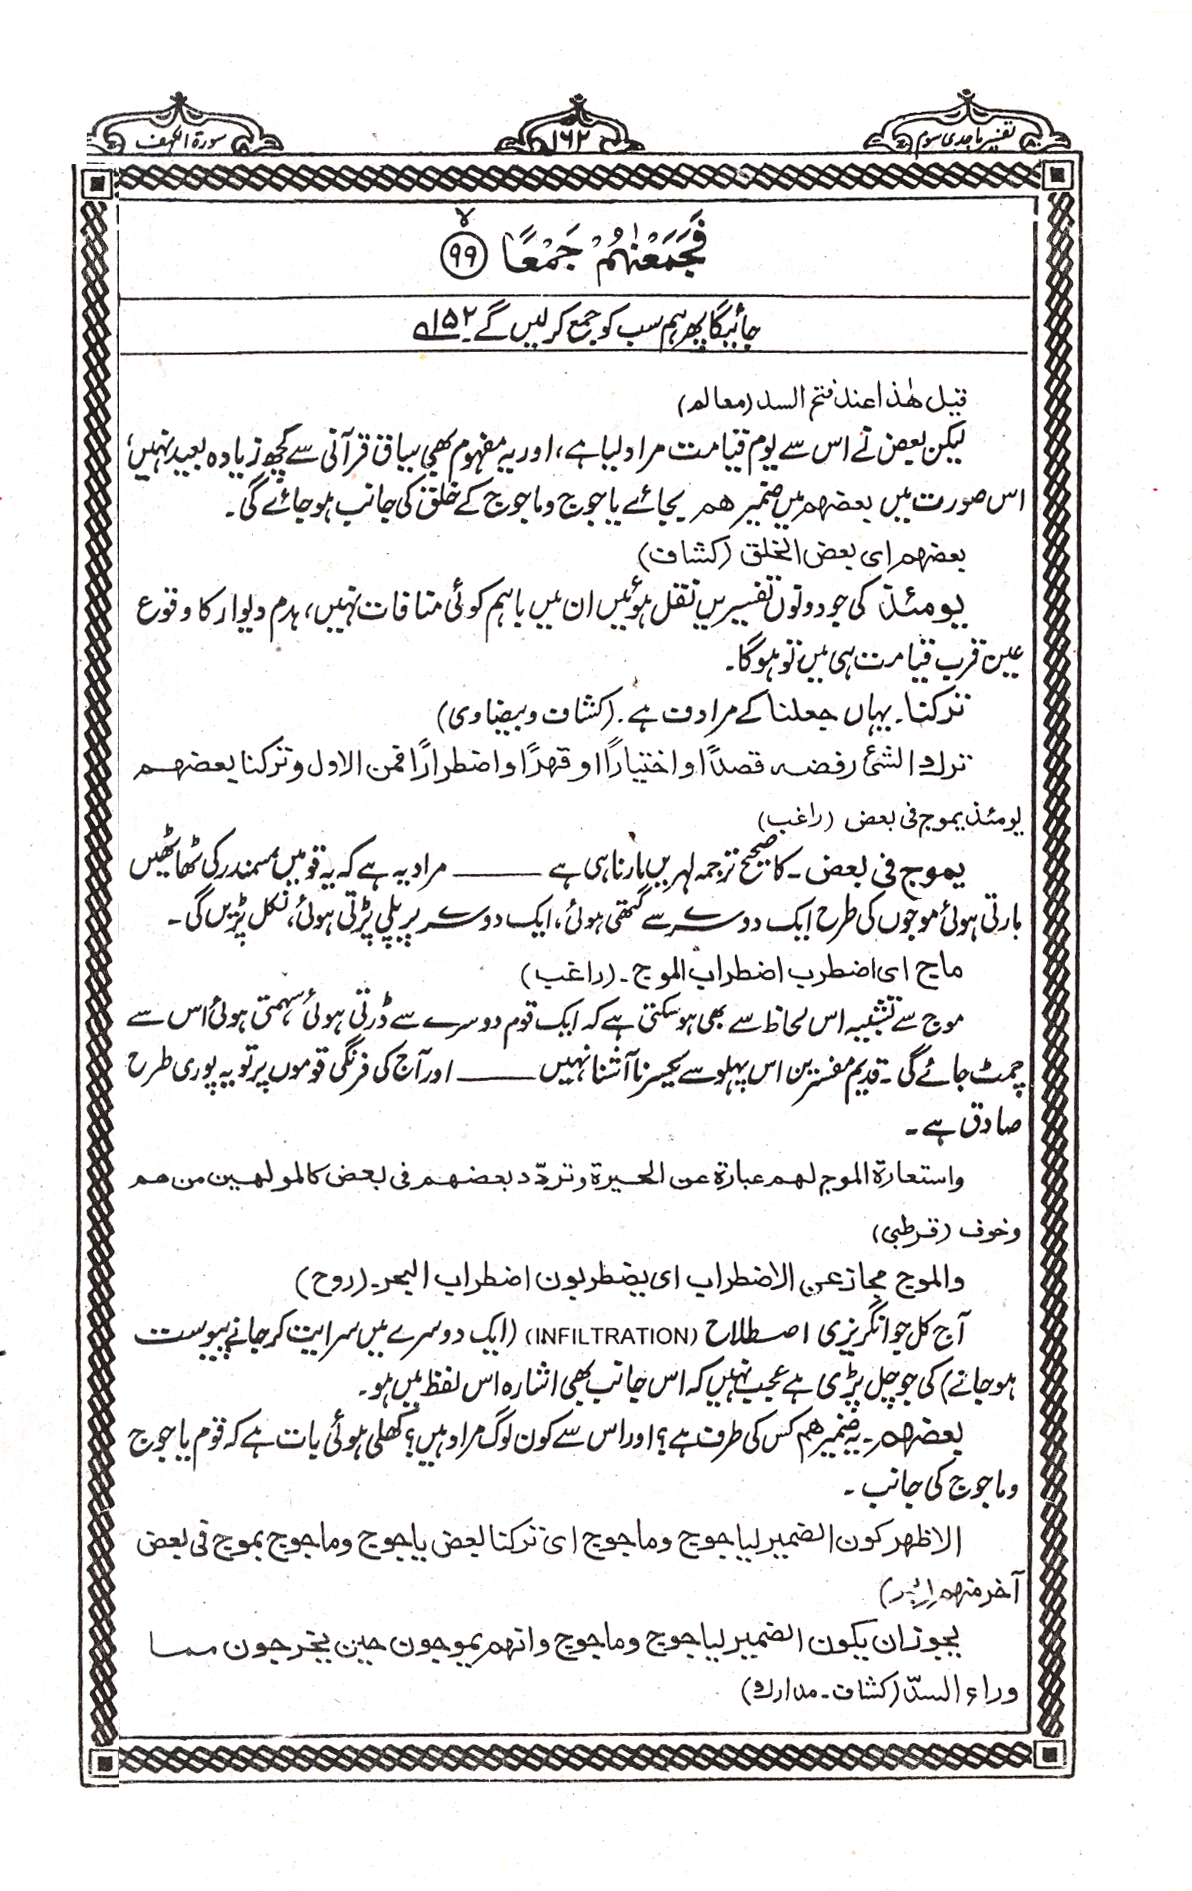 تفسیر ماجدی سوم
۱۶۲
سورۃ الکہف
فَجَمَعْنٰہُمْ جَمْعًا ﴿۹۹﴾ لا
جائیگا پھر ہم سب کو جمع کرلیں گے۔ ۱۵۲
قیل ھٰذا عند فتح السد (معالم)
لیکن بعض نے اس سے یوم قیامت مراد لیا ہے، اور یہ مفہوم بھی سیاق قرآنی سے کچھ زیادہ بعید نہیں،
اس صورت میں بعضھم میں ضمیر ھم بجائے یاجوج وماجوج کے خلق کی جانب ہوجائے گی۔
بعضھم ای بعض الخلق (کشاف)
یومئذ کی جو دونوں تفسیریں نقل ہوئیں ان میں باہم کوئی منافات نہیں، ہدم دیوار کا وقوع
عین قرب قیامت ہی میں تو ہوگا۔
ترکنا۔ یہاں جعلنا کے مرادف ہے۔ (کشاف وبیضاوی)
ترك الشئ رفضه قصدًا او اختیارًا او قھرًا واضطرارًا فمن الاول وترکنا بعضھم
یومئذ یموج فی بعض (راغب)
یموج فی بعض۔ کا صحیح ترجمہ لہریں مارنا ہی ہے ——— مراد یہ ہے کہ یہ قومیں سمندر کی ٹھاٹھیں
مارتی ہوئی موجوں کی طرح ایک دوسرے سے گتھی ہوئی، ایک دوسرے پر پلی پڑتی ہوئی، نکل پڑیں گی۔
ماج ای اضطرب اضطراب الموج۔ (راغب)
موج سے تشبیہ اس لحاظ سے بھی ہوسکتی ہے کہ ایک قوم دوسرے سے ڈرتی ہوئی سہمتی ہوئی اس سے
چمٹ جائے گی۔ قدیم مفسرین اس پہلو سے یکسر ناآشنا نہیں ——— اور آج کی فرنگی قوموں پر تو یہ پوری طرح
صادق ہے۔
واستعارۃ الموج لھم عبارۃ عن الحیرۃ وتردّد بعضھم فی بعض کالمولھین من ھم
وخوف (قرطبی)
والموج مجاز عن الاضطراب ای یضطربون اضطراب البحر۔ (روح)
آج کل جو انگریزی اصطلاح (INFILTRATION) (ایک دوسرے میں سرایت کرجانے پیوست
ہوجانے) کی جو چل پڑی ہے عجب نہیں کہ اس جانب بھی اشارہ اس لفظ میں ہو۔
بعضھم۔ یہ ضمیر ھم کس کی طرف ہے؟ اور اس سے کون لوگ مراد ہیں؟ کھلی ہوئی بات ہے کہ قوم یاجوج
وماجوج کی جانب۔
الاظھر کون الضمیر لیاجوج وماجوج ای ترکنا بعض یاجوج وماجوج یموج فی بعض
آخر منھم (بحر)
یجوز ان یکون الضمیر لیاجوج وماجوج وانھم یموجون حین یخرجون مما
وراء السدّ (کشاف۔ مدارك)